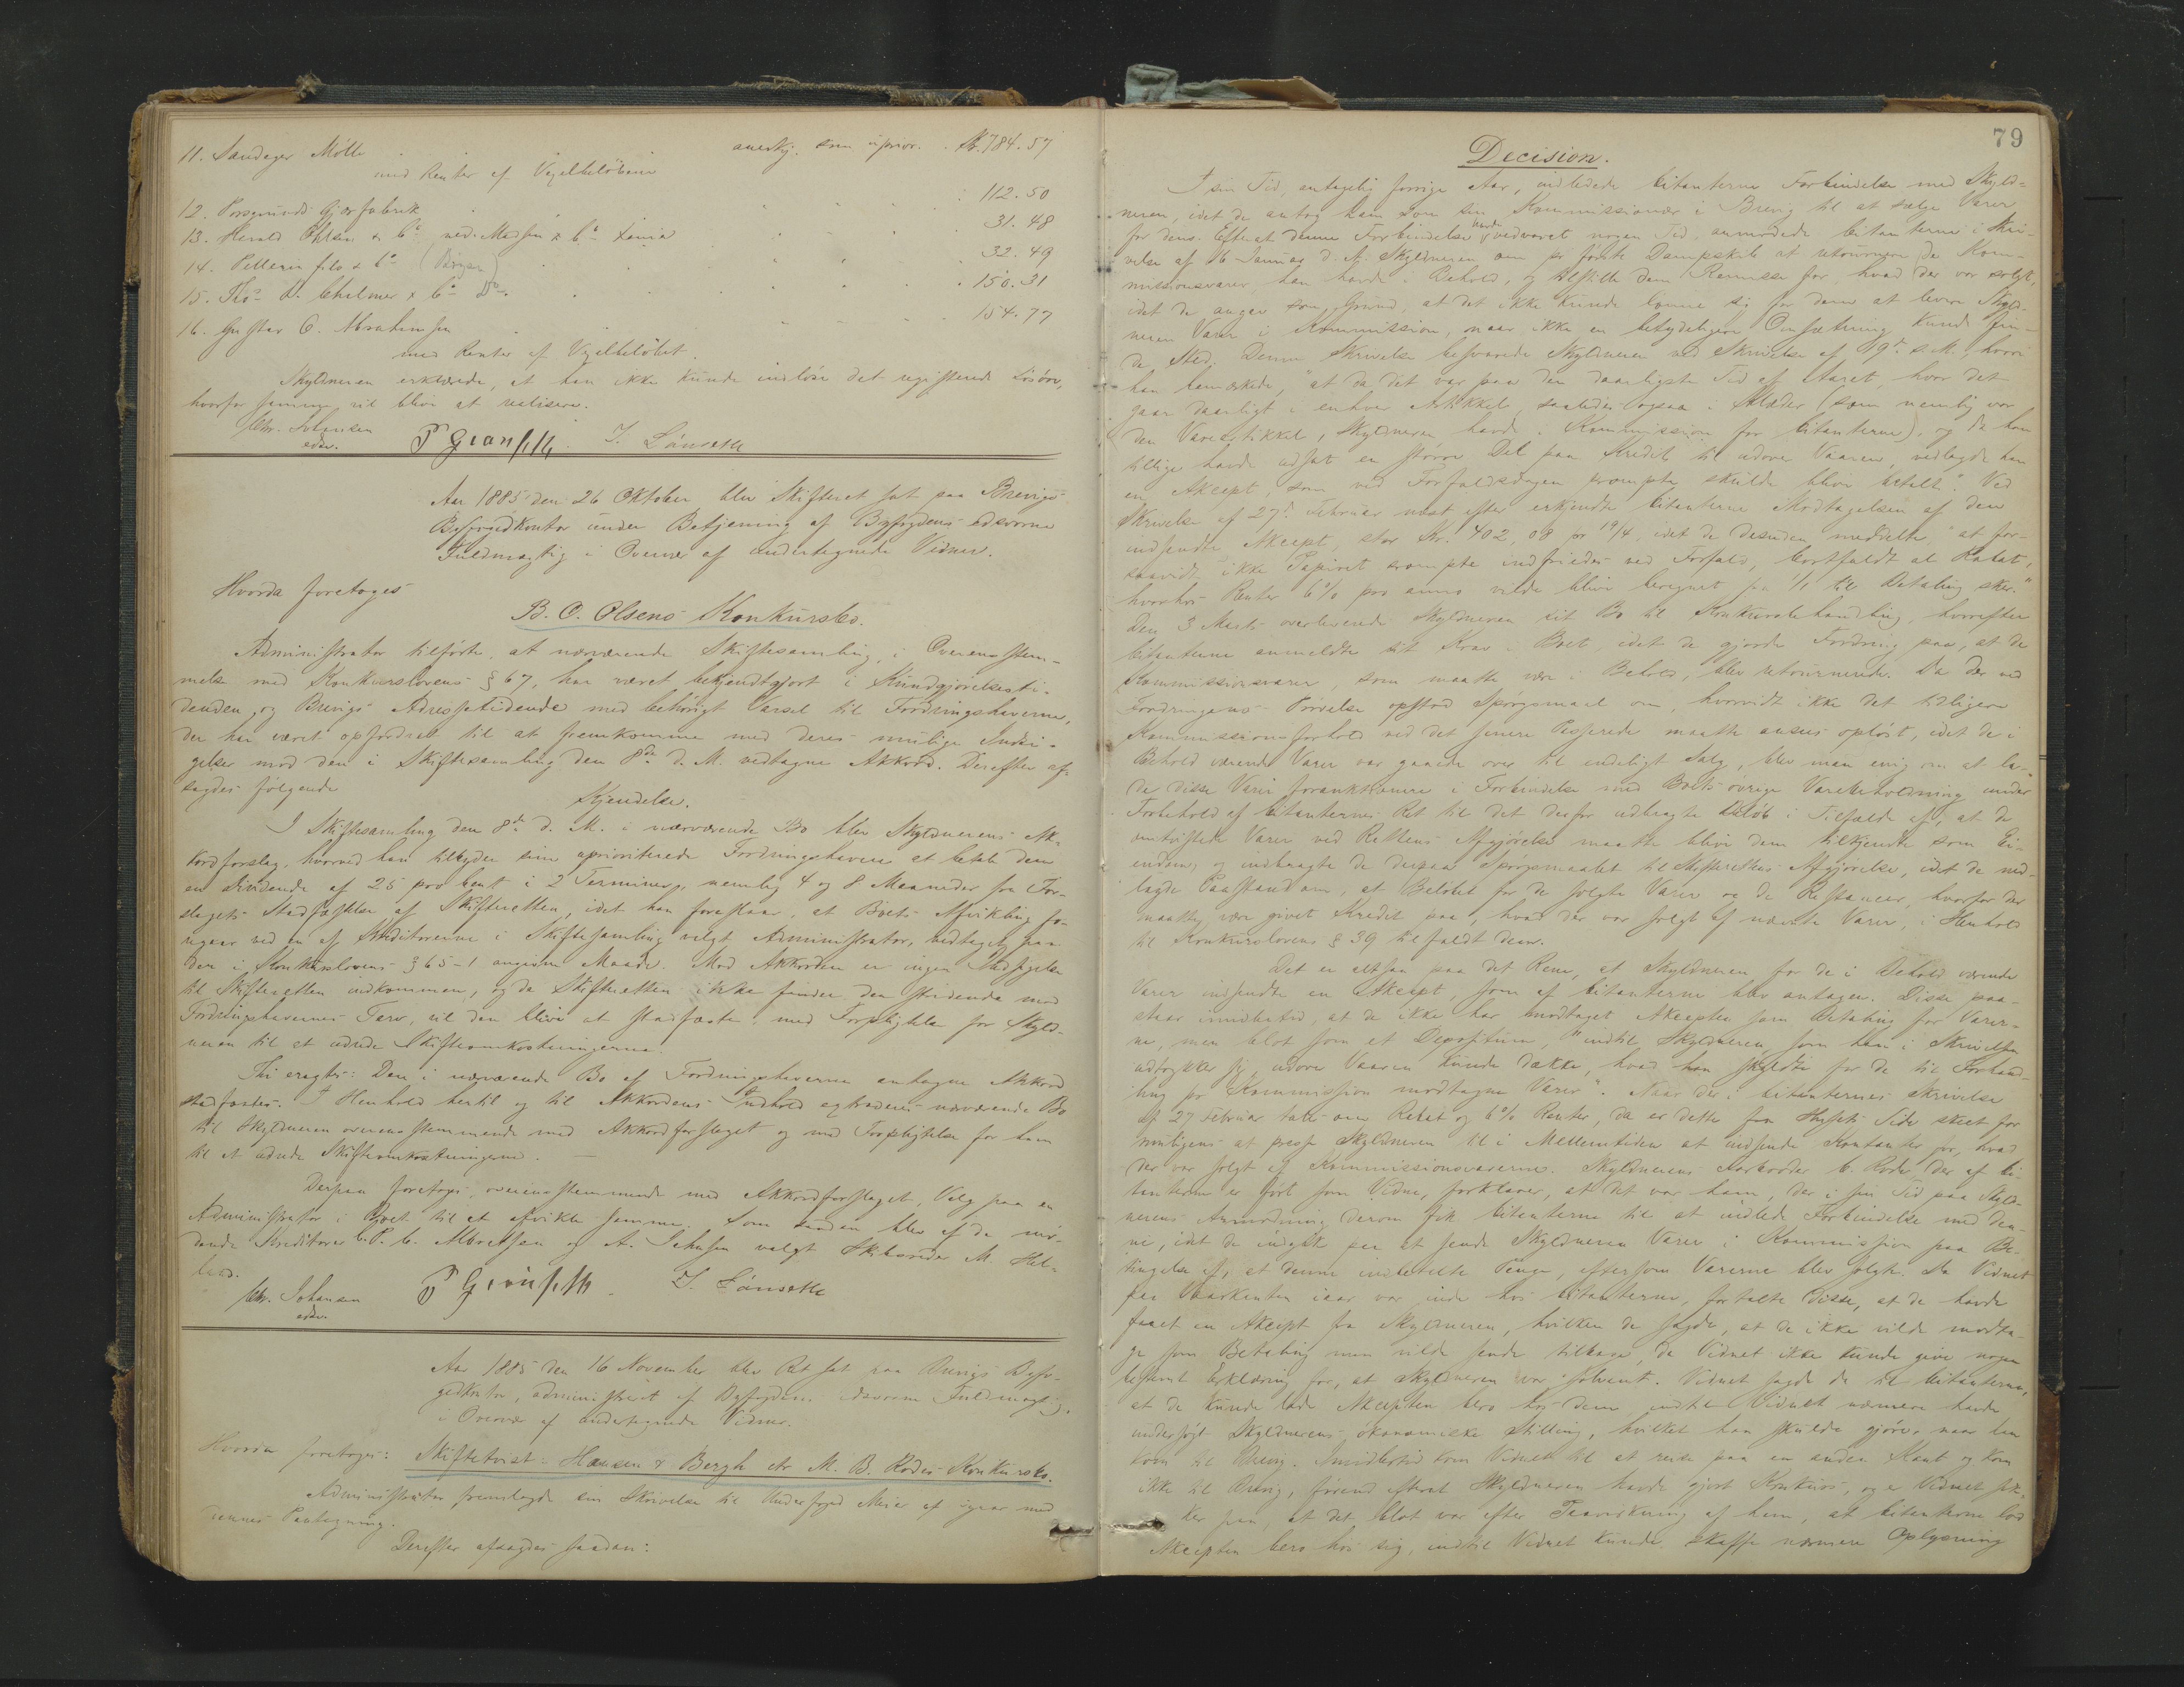 11. Sandager Mølle . . . anerkj. som uprior. . Kr. 784.57
med Renter af Vexelbeløbene
12. Porsgrunds Gjærfabrik . . . 112.50
13. Herald Ohlsen & Co. ved Madsen & Co. . . . 31.48
14. Pellerin fils & Co . . . 32.49
15. Ths. D. Chalmer & Co. Do. . . . 150.31
16. Gustav C. Abrahamsen . . . 154.77
med Renter af Vexelbeløbet.
Skyldneren erklærede, at han ikke kunde indløse det registrerede Løsøre,
hvorfor samme vil blive at realisere.
Chr. Johansen
edsv.
Aar 1885 den 26 Oktober blev Skifteret sat paa Brevigs
Byfogedkontor under Betjening af Byfogdens edsvorne
Fuldmægtig i Overvær af undertegnede Vidner.
Hvorda foretoges
B. O. Olsens Konkursbo.
Administrator tilførte, at nærværende Skiftesamling, i Overensstem-
melse med Konkurslovens § 67, har været bekjendtgjort i Kundgjørelsesti-
denden og Brevigs Adressetidende med behørigt Varsel til Fordringshaverne,
der har været opfordret til at fremkomme med deres mulige Indsi-
gelser mod den i Skiftesamling den 8de d. M. vedtagne Akkord. Derefter af-
sagdes følgende
Kjendelse.
I Skiftesamling den 8de d. M. i nærværende Bo blev Skyldnerens Ak-
kordforslag, hvorved han tilbyder sine uprioriterede Fordringshavere at betale dem
en Dividende af 25 pro Cent i 2 Terminer, nemlig 4 og 8 Maaneder fra For-
slagets Stadfæstelse af Skifteretten, idet han foreslaar, at Boets Afvikling fo-
regaar ved en af Kreditorerne i Skiftesamling valgt Administrator, vedtaget paa
den i Konkurslovens § 65-1 angivne Maade. Mod Akkorden er ingen Indsigelse
til Skifteretten indkommen, og da Skifteretten ikke finder den stridende mod
Fordringshavernes Tarv, vil den blive at stadfæste, med Forpligtelse for Skyld-
neren til at udrede Skifteomkostningerne.
Thi eragtes: Den i nærværende Bo af Fordringshaverne antagne Akkord
stadfæstes. I Henhold hertil og til Akkordens Indhold extraderes nærværende Bo
til Skyldneren overensstemmende med Akkordforslaget og med Forpligtelse for ham
til at udrede Skifteomkostningerne. —
Derpaa foretoges, overensstemmende med Akkordforslaget, Valg paa en
Administrator i Boet til at afvikle samme. Som saadan blev af de mø-
dende Kreditorer valgt M. Hel-
Chr. Johansen
edsv.
Aar 1885 den 16 November blev Ret sat paa Brevigs Byfo-
gedkontor, administreret af Byfogdens edsvorne Fuldmægtig,
i Overvær af undertegnede Vidner.
Hvorda foretoges: Skiftetvist: Hansen & Bergh ctr M. B. Rødes Konkursbo.
Administrator fremlagde sin Skrivelse til Underfoged Meier af igaar med
dennes Paategning.
Derefter afsagdes saadan:
79
Decision.
I sin Tid, antagelig forrige Aar, indledede Citanterne Forbindelse med Skyld-
neren, idet de antog ham som sin Kommissionær i Brevig til at sælge Varer
for dem. Efterat denne Forbindelse havde vedvaret nogen Tid, anmodede Citanterne i Skri-
velse af 16 Januar d. A. Skyldneren om pr første Dampskib at retournere de Kom-
missionsvarer, han havde i Behold, og tilstille dem Remisse for hvad der var solgt,
idet de angav som Grund, at det ikke kunde lønne sig for dem at levere Skyld-
neren Varer i Kommission, naar ikke en betydeligere Omsætning kunde fin-
de Sted. Denne Skrivelse besvarede Skyldneren ved Skrivelse af 19de s. M., hvori
han bemærkede, "at da det var paa den daarligste Tid af Aaret, hvor det
gaar daarligt i enhver Artikkel, saaledes ogsaa i Klæder (som nemlig var
den Vareartikkel, Skyldneren havde i Kommission for Citanterne), og da han
tillige havde udsat en større Del paa Kredit til udover Vaaren, vedlagde han
en Akcept, som ved Forfaldsdagen prompte skulde blive betalt." Ved
Skrivelse af 27de Februar næst efter erkjendte Citanterne Modtagelsen af den
indsendte Akcept, stor Kr. 402,08 pr 19/4, idet de desuden meddelte, "at for-
saavidt ikke Papiret prompte indfriedes ved Forfald, bortfaldt al Rabat,
hvorhos Renter 6% pro anno vilde blive beregnet fra 1/1 til Betaling sker."
Den 3 Marts overleverede Skyldneren sit Bo til Konkursbehandling, hvorefter
Citanterne anmeldte sit Krav i Boet, idet de gjorde Fordring paa, at de
Kommissionsvarer, som maatte være i Behold, blev retournerede. Da der ved
Fordringens Prøvelse opstod Spørgsmaal om, hvorvidt ikke det tidligere
Kommissionsforhold ved det senere Passerede maatte ansees opløst, idet de i
Behold værende Varer var gaaede over til endeligt Salg, blev man enig om at la-
de disse Varer forauktionere i Forbindelse med Boets øvrige Varebeholdning under
Forbehold af Citanternes Ret til det derfor udbragte Beløb i Tilfælde af, at de
omtvistede Varer ved Rettens Afgjørelse maatte blive dem tilkjendte som Ei-
endom, og indbragte de derpaa Spørgsmaalet til Skifterettens Afgjørelse, idet de ned-
lagde Paastand om, at Beløbet for de solgte Varer og de Restancer, hvorfor der
maatte være givet Kredit paa, hvad der var solgt af nævnte Varer, i Henhold
til Konkurslovens § 39 tilfaldt dem.
Det er altsaa paa det Rene, at Skyldneren for de i Behold værende
Varer indsendte en Akcept, som af Citanterne blev antagen. Disse paa-
staar imidlertid, at de ikke har modtaget Akcepten som Betaling for Varer-
ne, men blot som et Depositum, "indtil Skyldneren, som han i Skrivelsen
udtrykker sig, udover Vaaren kunde dække, hvad han skyldte for de til Forhand-
ling pr Kommission modtagne Varer". Naar der i Citanternes Skrivelse
af 27 Februar tales om Rabat og 6% Renter, da er dette fra Husets Side skeet for
muligens at presse Skyldneren til i Mellemtiden at indsende Kontanter for, hvad
der var solgt af Kommissionsvarerne. Skyldnerens Farbroder C. Røde, der af Ci-
tanterne er ført som Vidne, forklarer, at det var ham, der i sin Tid paa Skyld-
nerens Anmodning derom fik Citanterne til at indlede Forbindelse med den-
ne, idet de indgik paa at sende Skyldneren Varer i Kommission paa Be-
tingelse af, at denne indbetalte Penge, eftersom Varerne blev solgte. Da Vidnet
paa Vaarkanten iaar var inde hos Citanterne, fortalte disse, at de havde
faaet en Akcept fra Skyldneren, hvilken de sagde, at de ikke vilde modta-
ge som Betaling men vilde sende tilbage, da Vidnet ikke kunde give nogen
bestemt Erklæring for, at Skyldneren var solvent. Vidnet sagde da til Citanterne,
at de kunde lade Akcepten bero hos dem indtil Vidnet nærmere havde
undersøgt Skyldnerens økonomiske Stilling, hvilket han skulde gjøre, naar han
kom til Brevig. Imidlertid kom Vidnet til at reise paa en anden Kant og kom
ikke til Brevig, førend efterat Skyldneren havde gjort Konkurs, og er Vidnet sik-
ker paa, at det blot var efter Paavirkning af ham, at Citanterne lod
Akcepten bero hos sig, indtil Vidnet kunde skaffe nærmere Oplysning